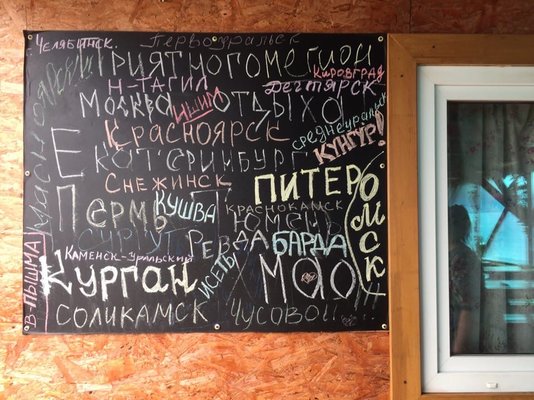 Челябинск. Первоуральск
Приятного Мегион
Кировград
Н-Тагил Дегтярск
Москва Ишим отдыха
Красноярск Среднеуральск
Екатеринбург Кунгур!
Снежинск Питер
Пермь Кушва Краснокамск Омск
Тюмень
Сургут Ревда Барда
Каменск-Уральский
Курган Исеть Мао
В-Пышма
Соликамск Чусовой!!!